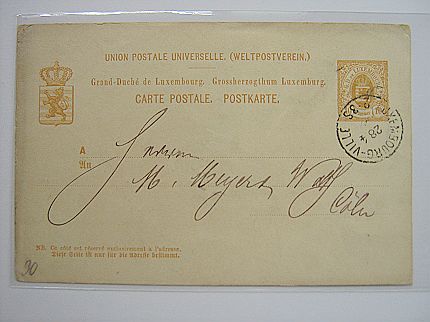 UNION POSTALE UNIVERSELLE. (WELTPOSTVEREIN.)
Grand-Duché de Luxembourg. Grossherzogthum Luxemburg.
CARTE POSTALE. POSTKARTE.
LUXEMBOURG-VILLE
A
An
Herrn
M. Meyers
Cöln
NB. Ce côté est réservé exclusivement à l'adresse.
Diese Seite ist nur für die Adresse bestimmt.
30